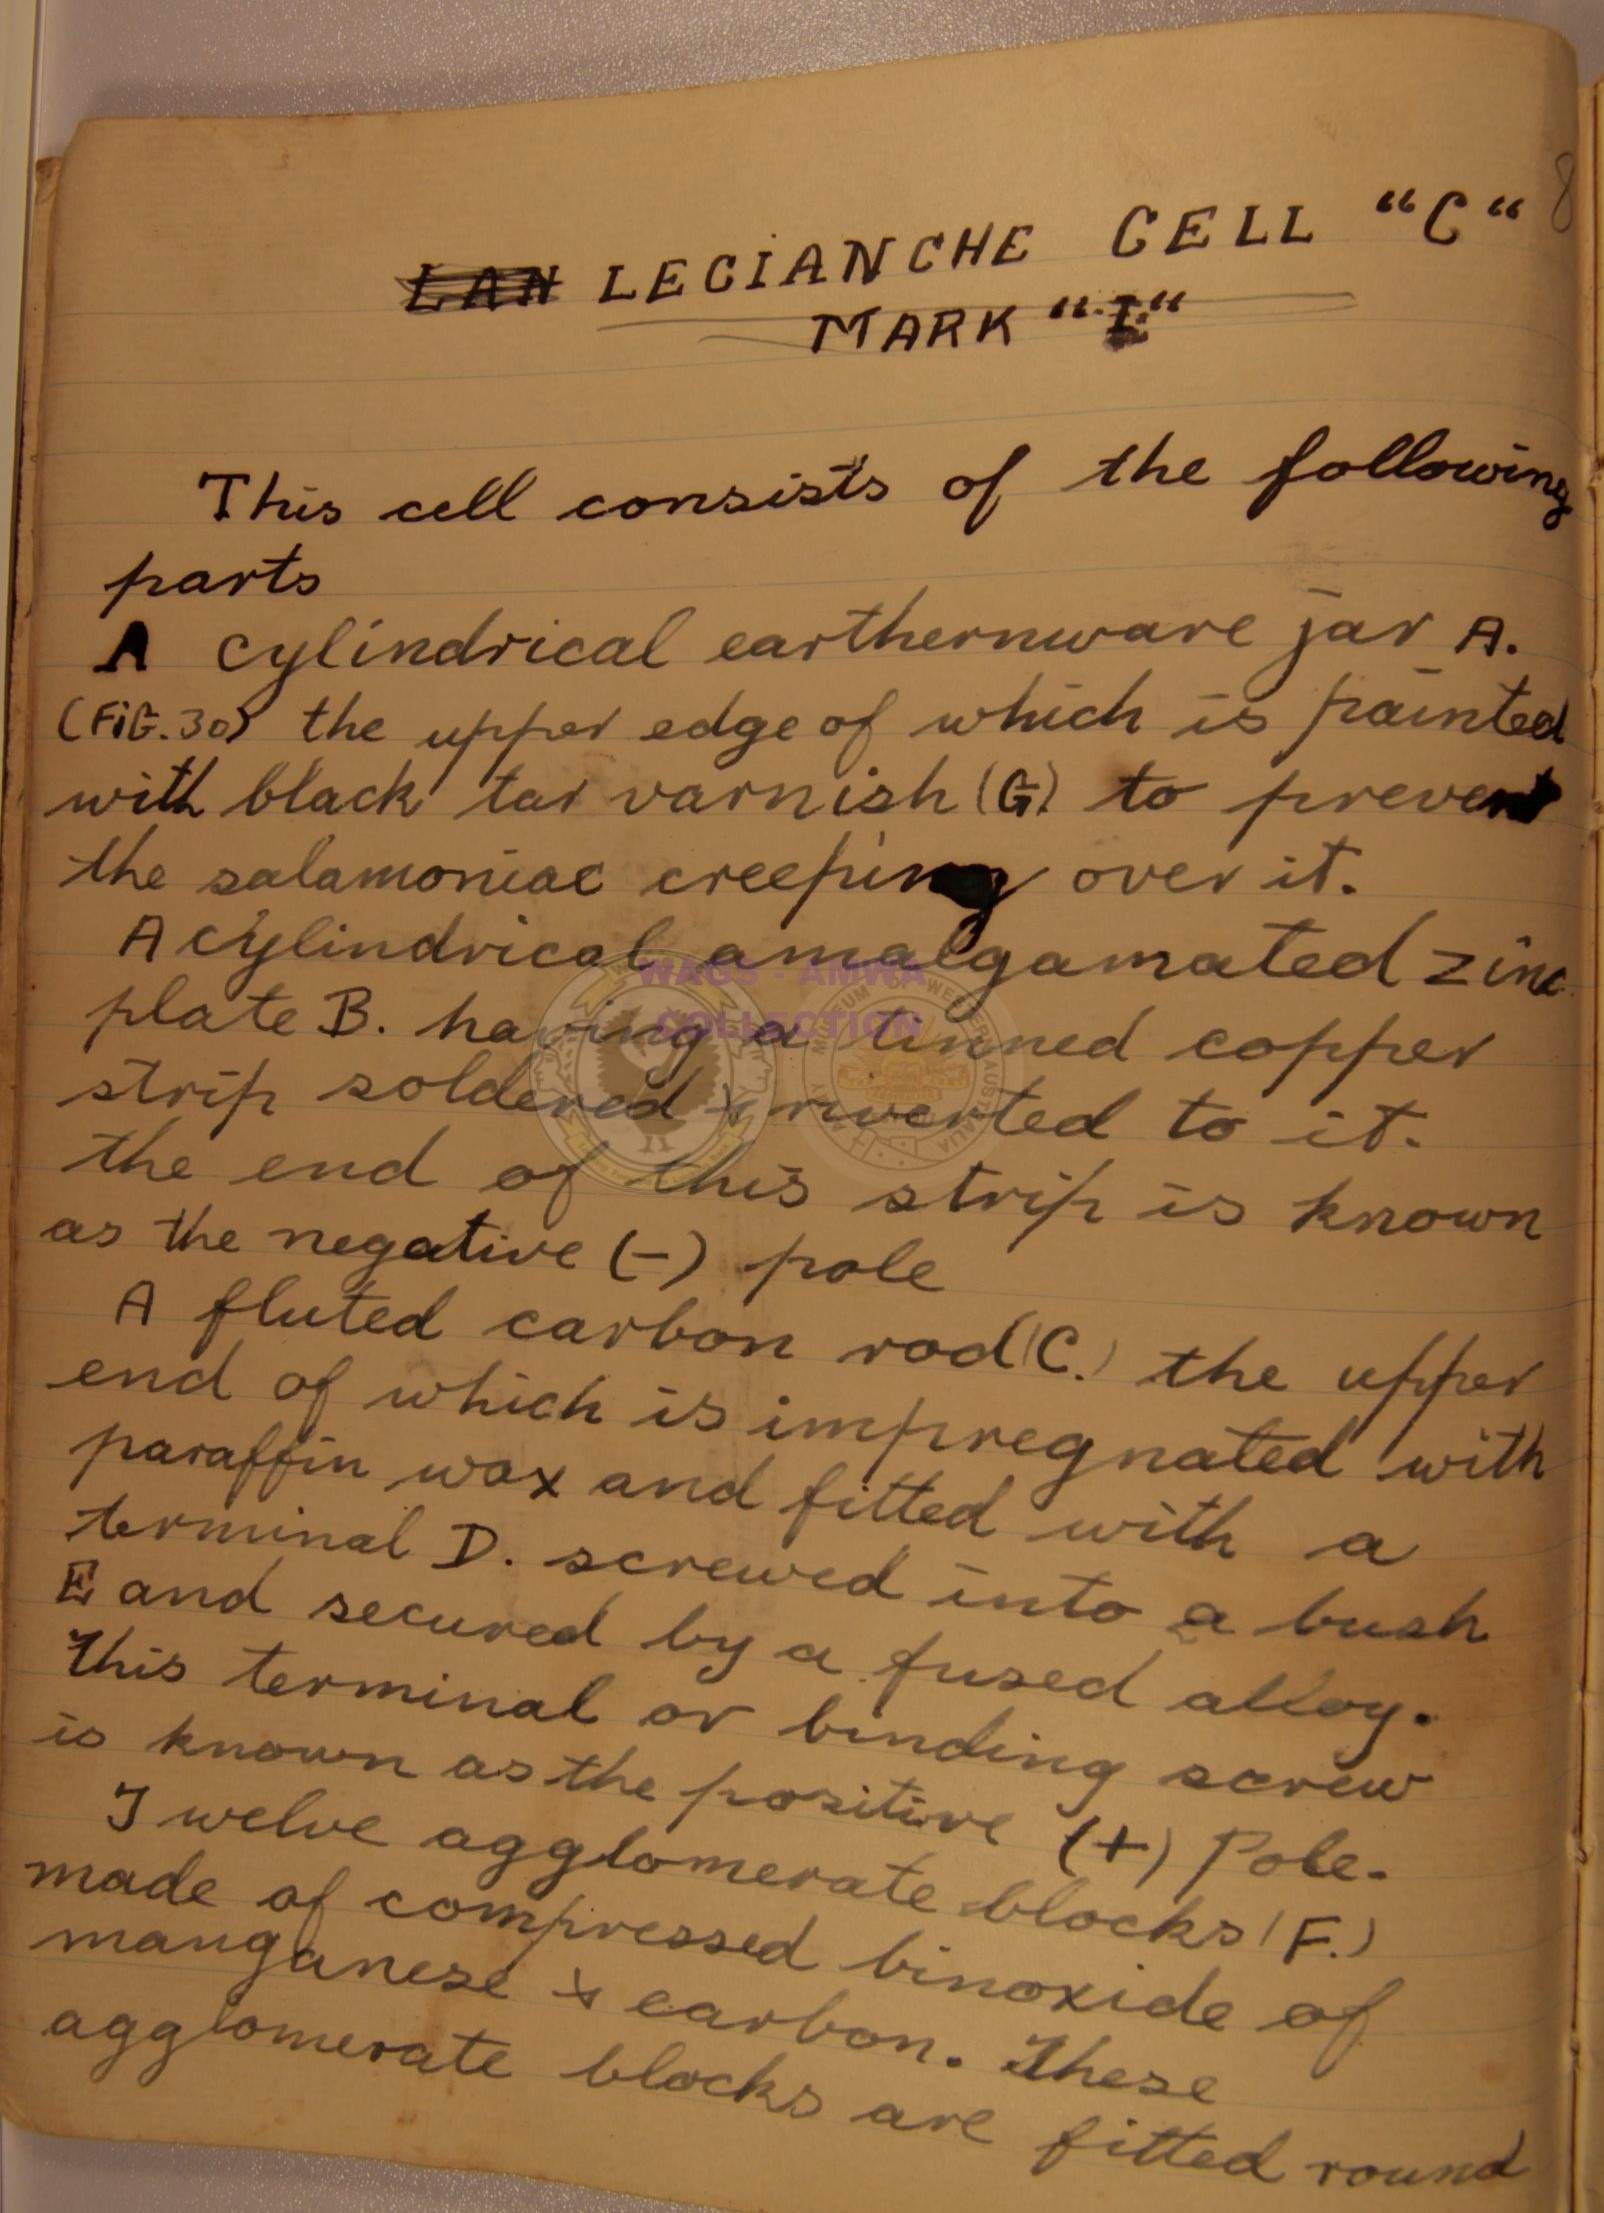 8
LAN LECIANCHE CELL "C"
MARK "I"
This cell consists of the following
parts
A cylindrical earthernware jar A.
(FIG. 30) the upper edge of which is painted
with black tar varnish (G) to prevent
the salamoniac creeping over it.
A cylindrical amalgamated zinc
plate B. having a tinned copper
strip soldered & riverted to it.
the end of this strip is known
as the negative (-) pole
A fluted carbon rod (C.) the upper
end of which is impregnated with
paraffin wax and fitted with a
terminal D. screwed into a bush
E and secured by a fused alloy.
This terminal or binding screw
is known as the positive (+) Pole.
Twelve agglomerate blocks (F.)
made of compressed binoxide of
manganese & carbon. These
agglomerate blocks are fitted round
WAGS - AMWA
COLLECTION